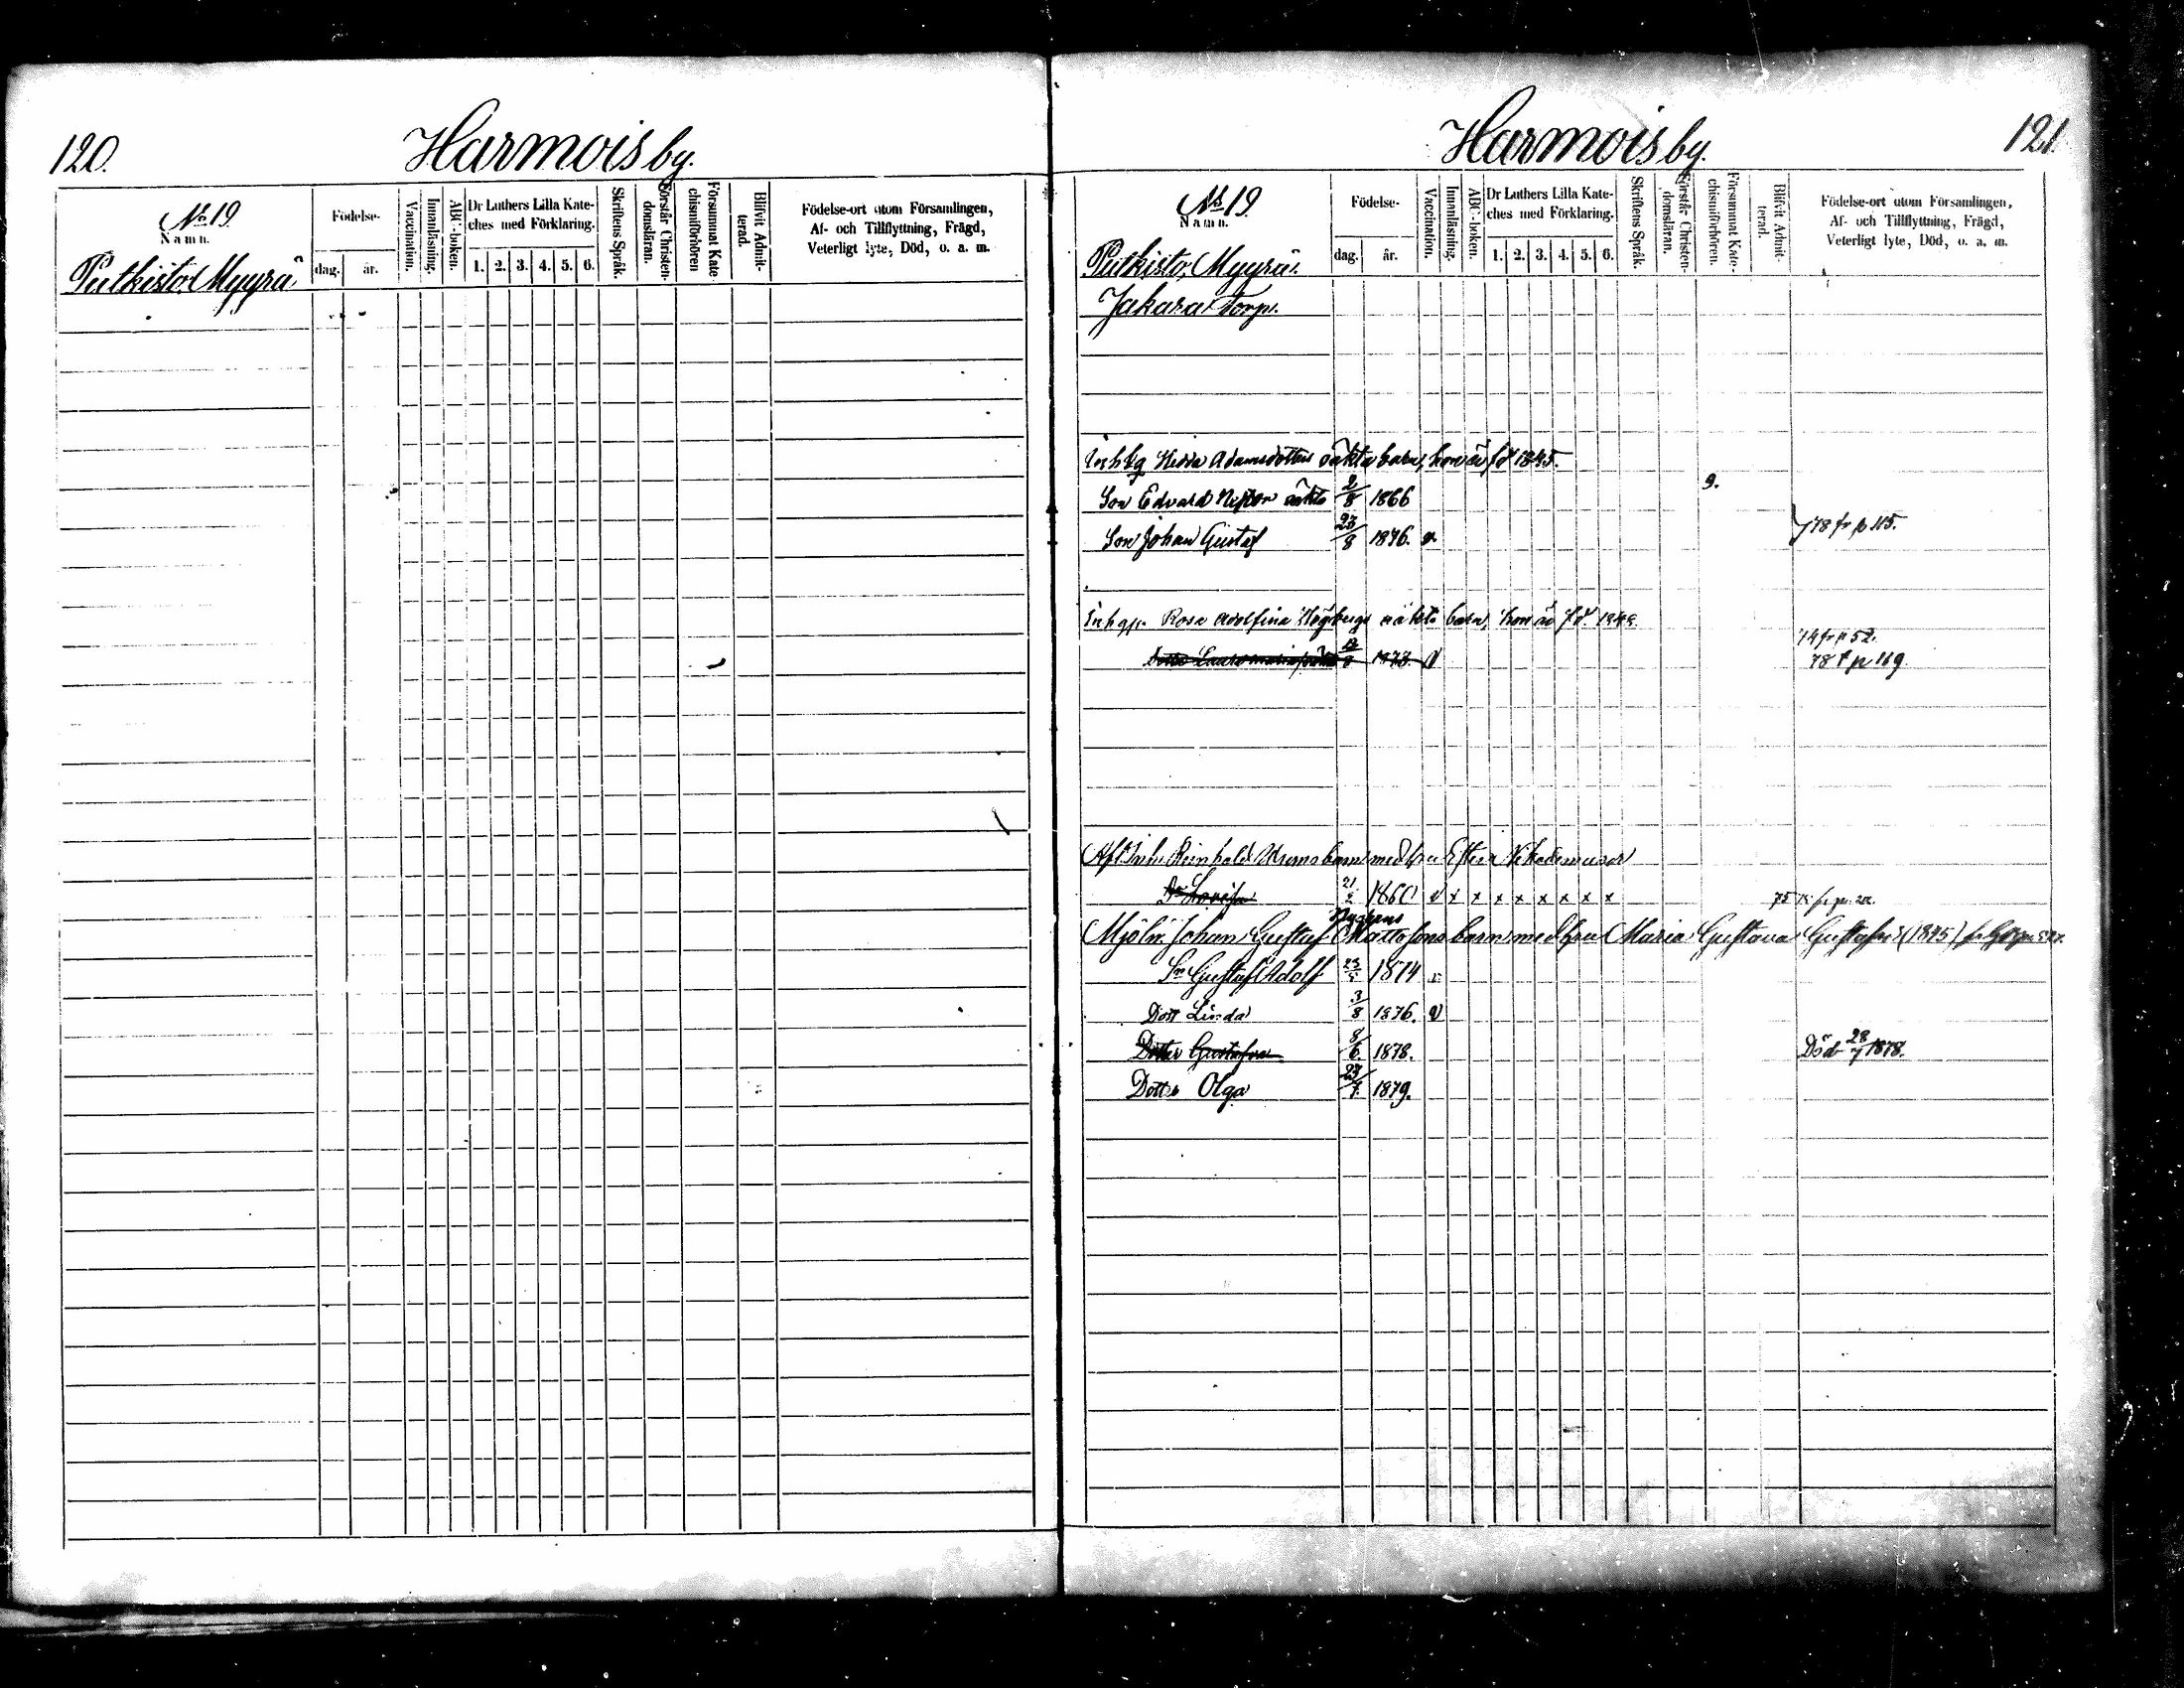 120.
Harmois by.
No 19.
Namn.
Putkisto, Myyrä
Födelse-
dag.
år.
Vaccination.
Innanläsning.
ABC-boken.
Dr Luthers Lilla Kate-
ches med Förklaring.
1. 2. 3. 4. 5. 6.
Skriftens Språk.
Förstår Christen-
domsläran.
Försummat Kate-
chismiförhören
Blifvit Admit-
terad.
Födelse-ort utom Församlingen,
Af- och Tillflyttning, Frägd,
Veterligt lyte, Död, o. a. m.
Harmois by.
121.
No 19.
Namn.
Putkisto, Myyrä.
Födelse-
dag.
år.
Vaccination.
Innanläsning.
ABC-boken.
Dr Luthers Lilla Kate-
ches med Förklaring.
1. 2. 3. 4. 5. 6.
Skriftens Språk.
Förstår Christen-
domsläran.
Försummat Kate-
chismiförhören.
Blifvit Admit-
terad.
Födelse-ort utom Församlingen,
Af- och Tillflyttning, Frägd,
Veterligt lyte, Död, o. a. m.
Jakara torp.
Hedda Adamsdotters oäkta barn, hon är fd 1845.
Son Edvard oäkta 2/8 1866 9.
Son Johan Gustaf 23/8 1876. v. 78 fr p 115.
Rosa Adolfina Högbergs oäkta barn, hon är fd. 1848.
14 fr p 52.
1873. v 78 t p 169.
Afl Inh. Reinhold barn med hu
Lovisa 21 1860 v x x x x x x x x 75
Nygrens
Mjöln. Johan Gustaf Mattssons barn med hu Maria Gustava (1845)
Sn Gustaf Adolf 23/5 1874 v
Dott Linda 3/8 1876. v
Dotter Gustafva 8/6. 1878. Död 28/7 1878.
Dotter Olga 23/7. 1879.